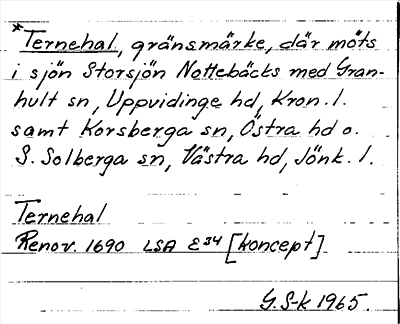 *Ternehal, gränsmärke, där möts
i sjön Storsjön Nottebäcks med Gran-
hult sn, Uppvidinge hd, Kron. l.
samt Korsberga sn, Östra hd o.
S. Solberga sn, Västra hd, Jönk. l.
Ternehal
Renov. 1690 LSA E34 [koncept]
G. S-k 1965.